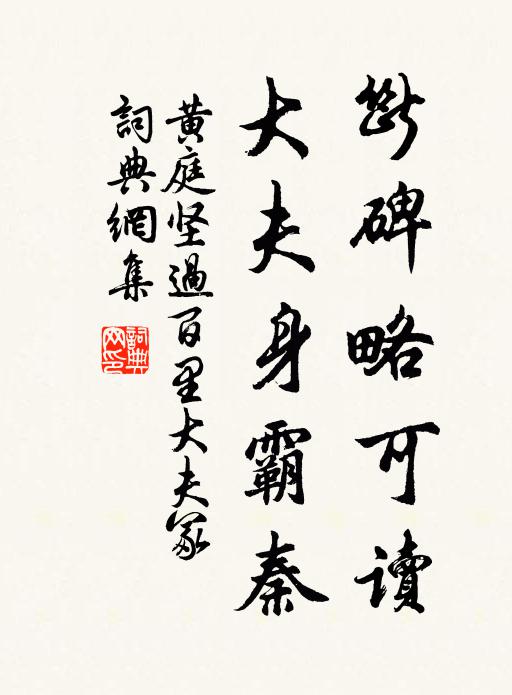 斷碑略可讀
大夫身霸秦
黃庭坚過百里大夫冢
詞典網集
詞典網印